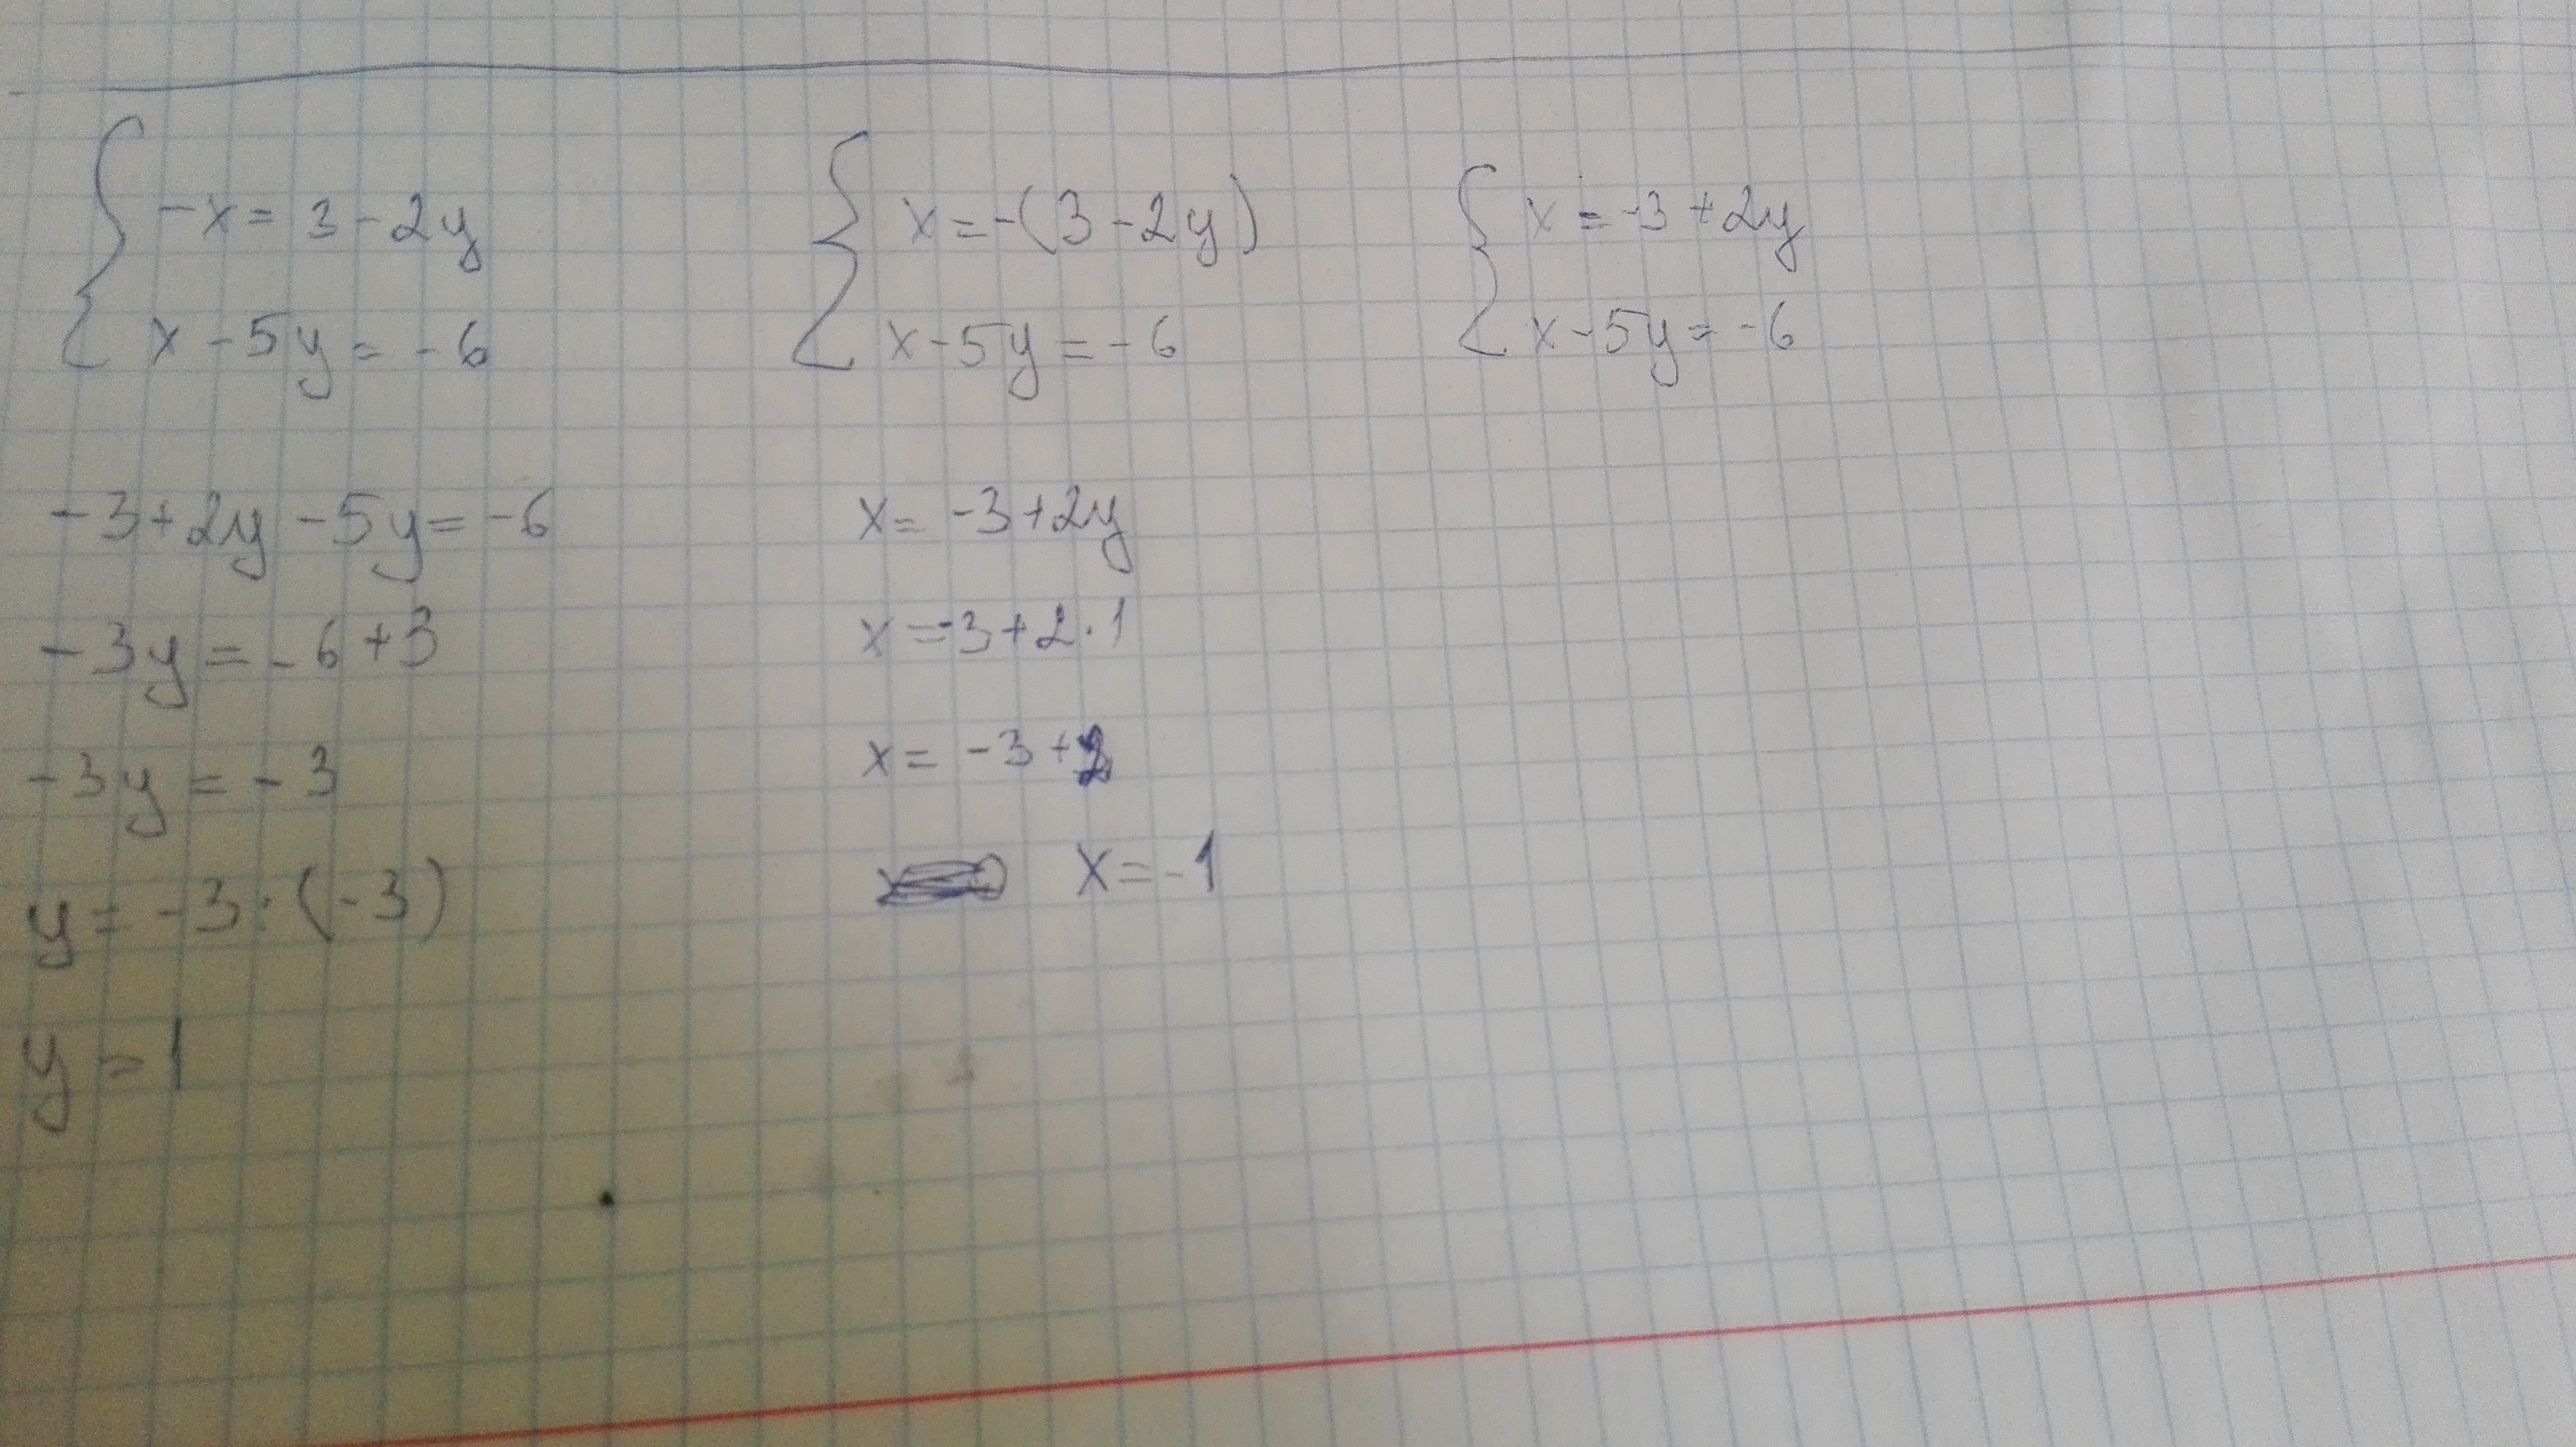 -x = 3 - 2y
x - 5y = -6
x = -(3 - 2y)
x - 5y = -6
x = -3 + 2y
x - 5y = -6
-3 + 2y - 5y = -6
-3y = -6 + 3
-3y = -3
y = -3 : (-3)
y = 1
x = -3 + 2y
x = -3 + 2 · 1
x = -3 + 2
x = -1